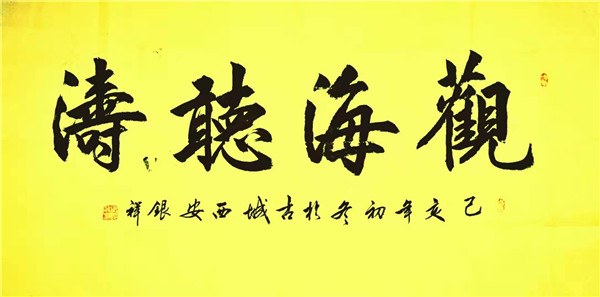 觀海聽濤
己亥年初冬於古城西安銀祥